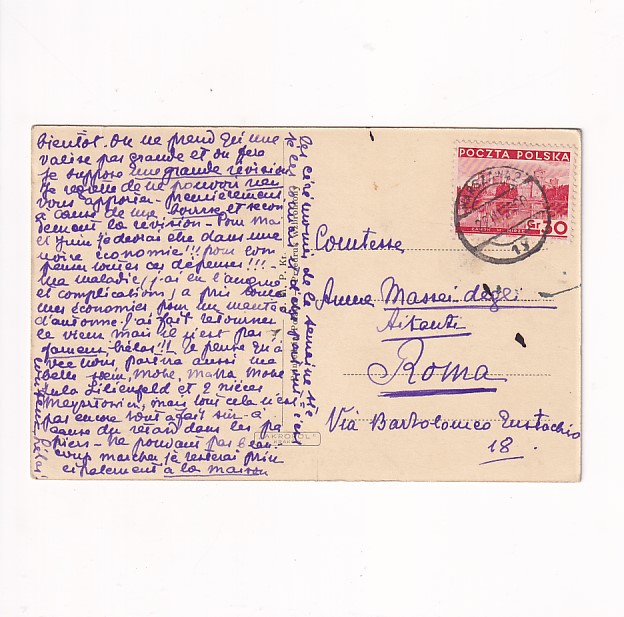 bientot. On ne prend qu'une
valise pas grande et on fera
je suppose une grande revision
Je regrette de ne pouvoir rien
vous apporter - premièrement
à cause de ma bourse et secon
dement la revision. Pour Mai
et Juin je devrai être dans une
noire économie!!! pour com
penser toutes ces défenses!!! -
ma maladie, j'ai eu l'angine
et complications, a pris toutes
mes économies, pour un manteau
d'automne. J'ai fait retourner
le vieux mais il n'est pas
fameux, hélas!!! Je pense qu'a
vec nous partira aussi ma
belle soeur, Mohe, Masia Mohe
Lula Lilienfeld et 2 nièces
mais tout cela n'est
pas encore tout à fait sûr - à
cause du retard dans les pa
piers - Ne pouvant pas beau
coup marcher je resterai prin
cipalement à la maison
les cérémonies de la semaine Ste
je les
c'est
hélas!
AKROPOL
POCZTA POLSKA
Gr. 30
19
Comtesse
Anna Massei degli
Aitanti
Roma
Via Bartolomeo Eustachio
18.